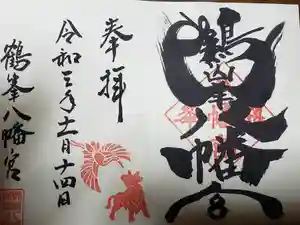 鶴峯八幡宮
奉拝
令和三年十一月十四日
鶴峯八幡宮